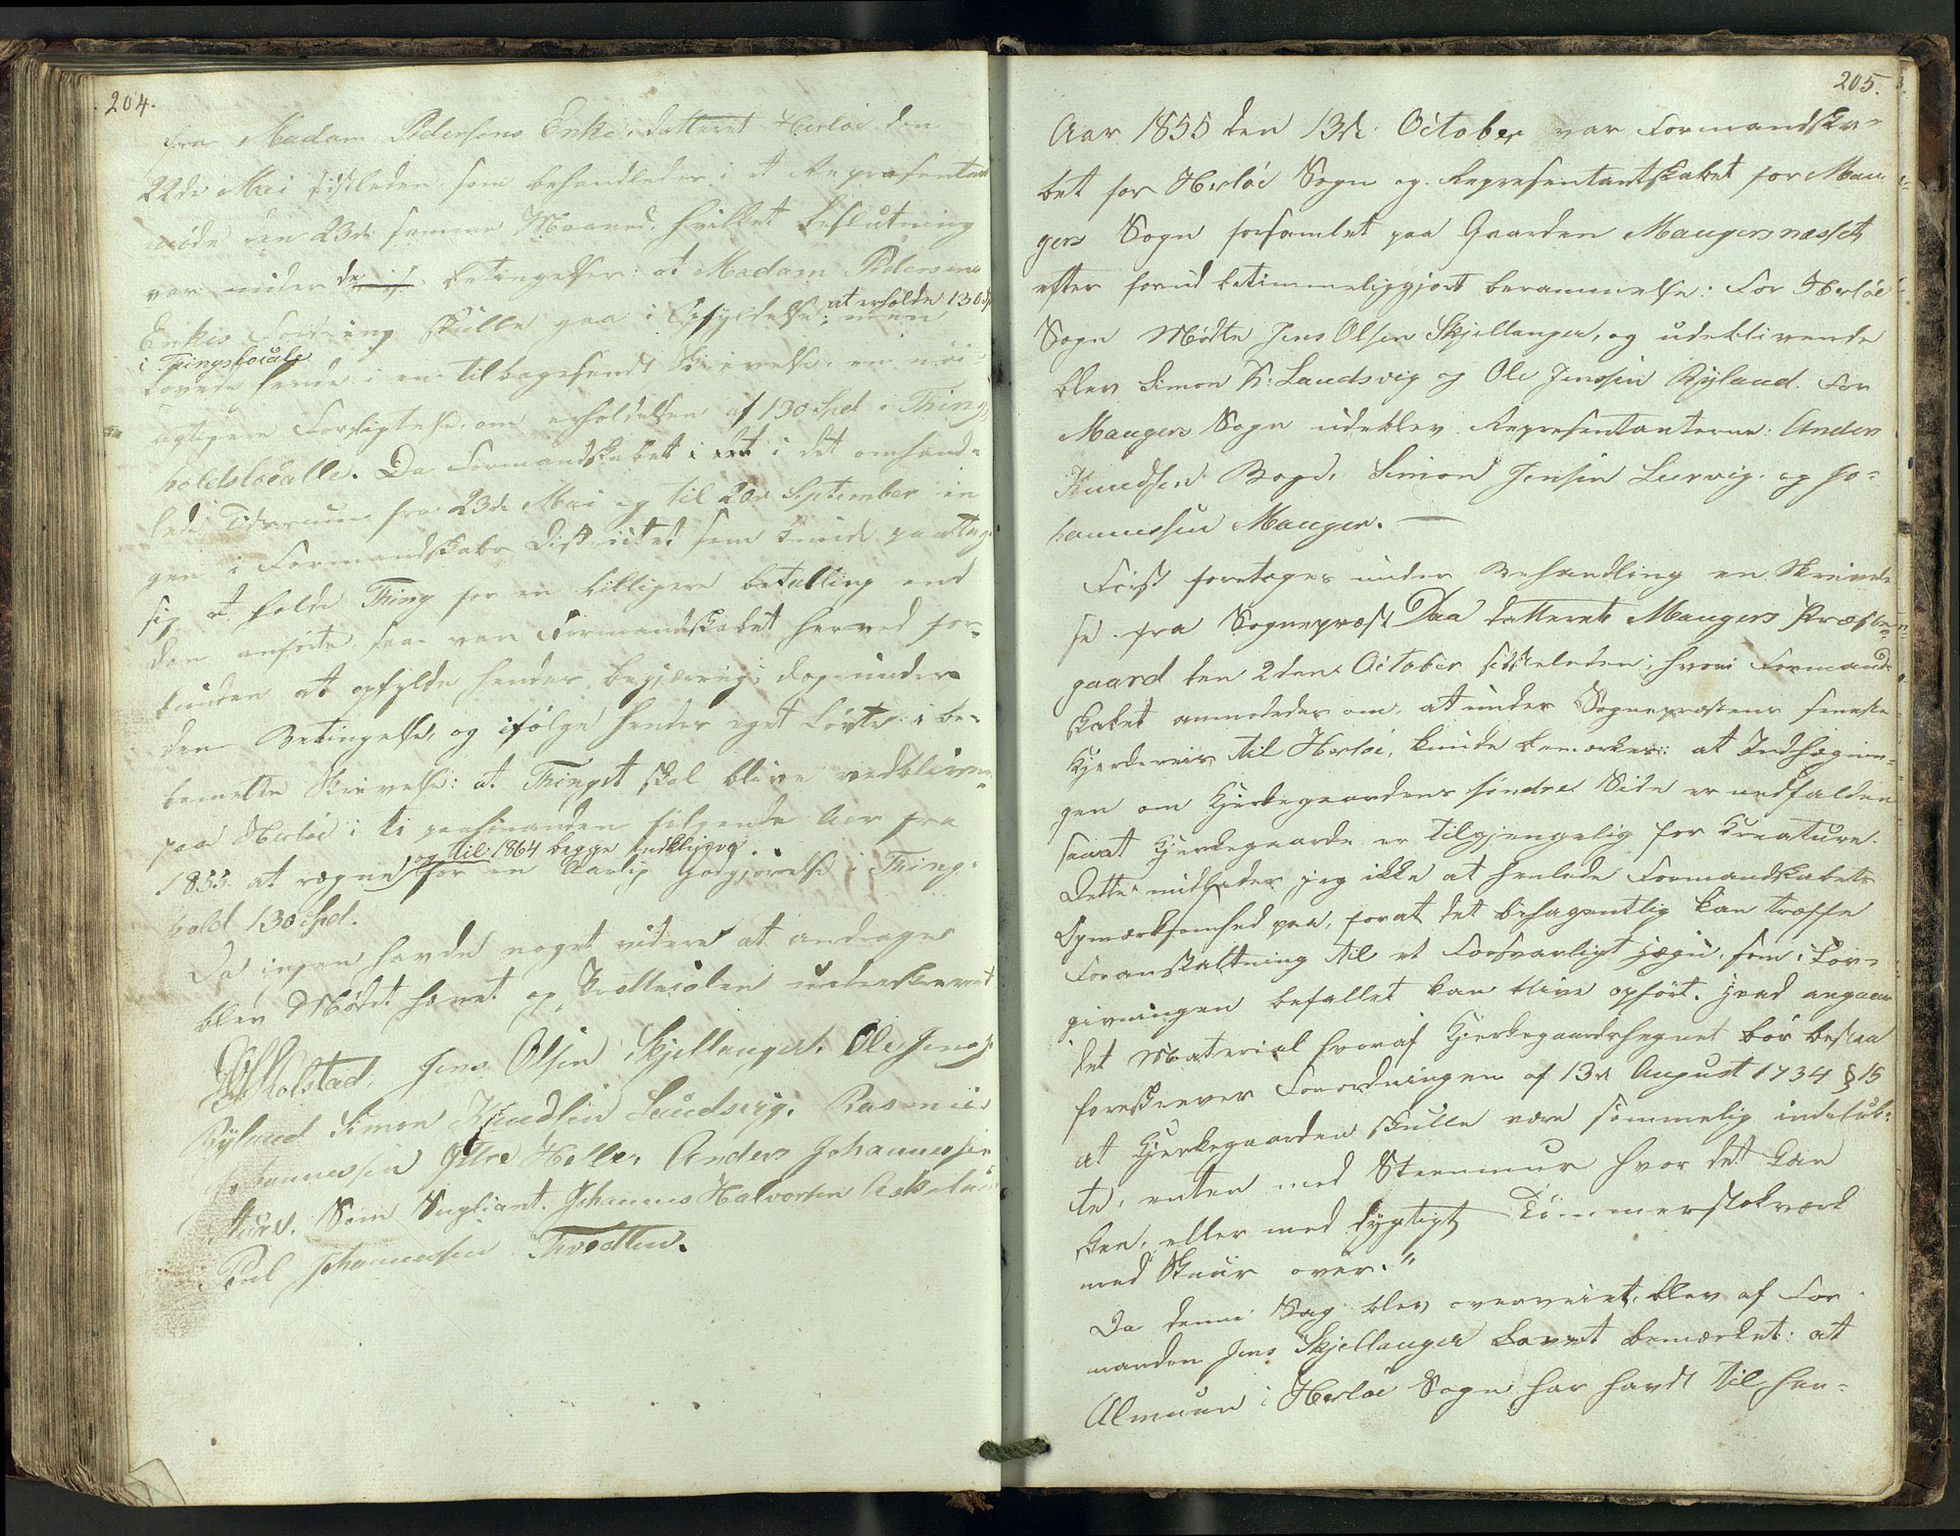 204.
fra Madam Pedersens Enke, datteret Herløe den
22de Mai sidstleden, som behandledes i et Repræsentant
møde den 23de samme Maaned. hvilket beslutning
var under de betingelser: at Madam Pedersens
Enkes Fordring skulle gaa i Opfyldelse; men at erholde 130 Spd
i Tingslocale
lovede hende i en tilbagesendt Skrivelse, en nøi-
agtigere Forsigtelse om erholdelsen af 130 Spd i Thing-
holdslocalle. Da Formandskabet i det omhand-
lede Tidsrum fra 23de Mai og til 20de September in
gen i Formandskabs Districtet som kunde paatag
sig at holde Thing for en billigere betalling end
den anførte, saa var Formandskabet herved for-
bunden at opfylde hendes begjæring; dog under
den Betingelse, og ifølge hendes eget Løvte i be-
bemelte Skrivelse: at Thinget skal blive vedblivne
paa Herløe i ti paahinanden følgende Aar fra
og til 1864 begge indklusive
1855 at regne, for en Aarlig Godgjørelse i Thing-
hold 130 Spd.
Da ingen havde noget videre at andrage
blev Mødet hævet og Protteiolen underskrevet
Molstad, Jens Olsen Skjellanger. Ole Jenss:
Ryland Simon Knudsen Landsvig. Rasmus
Johannessen Ytre Helle, Anders Johannessen
Ture. Som Supliant. Johannes Halvorsen Askelan
Poul Johannessen Tvedten.
205.
Aar 1855 den 13de October var Formandska-
bet for Herløe Sogn og Repræsentantskabet for Mau-
gers Sogn forsamlet paa Gaarden Maugersnæsset
efter forud betimmeliggjort berammelse: For Herløe
Sogn Mødte Jens Olsen Skjellanger, og udeblivende
blev Simon K: Landsvig og Ole Jenssen Ryland. For
Maugers Sogn udeblev Repræsentanterne: Anders
Knudsen Boge, Simon Jensen Lurvig. og Jo-
hannessen Manger. —
Først foretoges under Behandling en Skrivel
se fra Sognepræst Daa datteret Maugers Præste-
gaard den 2den October sidstleden; hvori Formand-
skabet anmodedes om, at under Sognepræstens seneste
Kjerkereis til Herløe, kunde bemærkes: at Indhægnin-
gen om Kjerkegaardens søndre Side er nedfalden
saa at Kjerkegaarde er tilgjengelig for Kreature.
Dette undlader jeg ikke at henlede Formandskabets
Opmærksomhed paa, forat det behagentlig kan træffe
Foranstaltning til et Forsvarligt Hægn, som i Lov-
givningen befallet kan blive opført. Hvad angaar
det Material hvoraf Kjerkegaardshegnet bør bestaa
foreskriver Forordningen af 13de August 1734 § 15
at Kjerkegaarden skulle være sømmelig indeluk-
te, enten med Steenmuur hvor det kan
skee, eller med dygtigt Tømmerstokværk
med Skuur over."
Da denne Sag blev overveiet, blev af For-
manden Jens Skjellanger bemærket: at
Almuen i Herløe Sogn har havdt til hen-